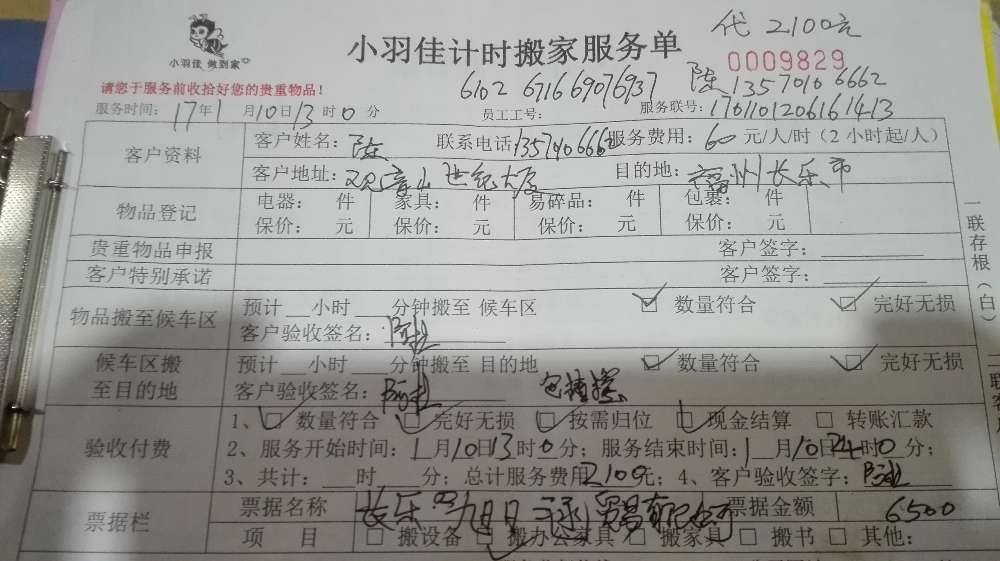 代 2100元
小羽佳 做到家
小羽佳计时搬家服务单
0009829
请您于服务前收拾好您的贵重物品！
6102 6716 6907 6937 陈 13570106662
服务时间：17年1月10日13时0分 员工工号： 服务联号：1701101206161413
客户资料
客户姓名：陈 联系电话 服务费用：60元/人/时（2小时起/人）
客户地址：观音山世纪大厦 目的地：福州长乐市
物品登记
电器： 件 家具： 件 易碎品： 件 包裹： 件
保价： 元 保价： 元 保价： 元 保价： 元
贵重物品申报 客户签字：
客户特别承诺 客户签字：
物品搬至候车区
预计__小时__分钟搬至 候车区 数量符合 完好无损
客户验收签名：
候车区搬至目的地
预计__小时__分钟搬至 目的地 数量符合 完好无损
客户验收签名：
验收付费
1、数量符合 完好无损 按需归位 现金结算 转账汇款
2、服务开始时间：1月10日13时0分；服务结束时间：1月10日24时0分；
3、共计：__时__分；总计服务费用2100元；4、客户验收签字：
票据栏
票据名称 长乐 票据金额 6500
项 目 搬设备 搬办公家具 搬家具 搬书 其他：
一联存根（白）